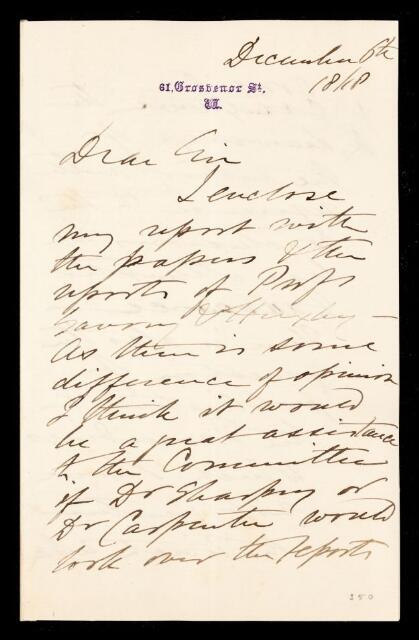 December 6th
18
61, Grosvenor St.
W.
Dear Sir
I enclose
my report with
the papers & the
reports of Profs
Savory & Huxley —
As there is some
difference of opinion
I think it would
be a great assistance
to the Committee
if Dr Sharpey or
Dr Carpenter would
look over the reports
350